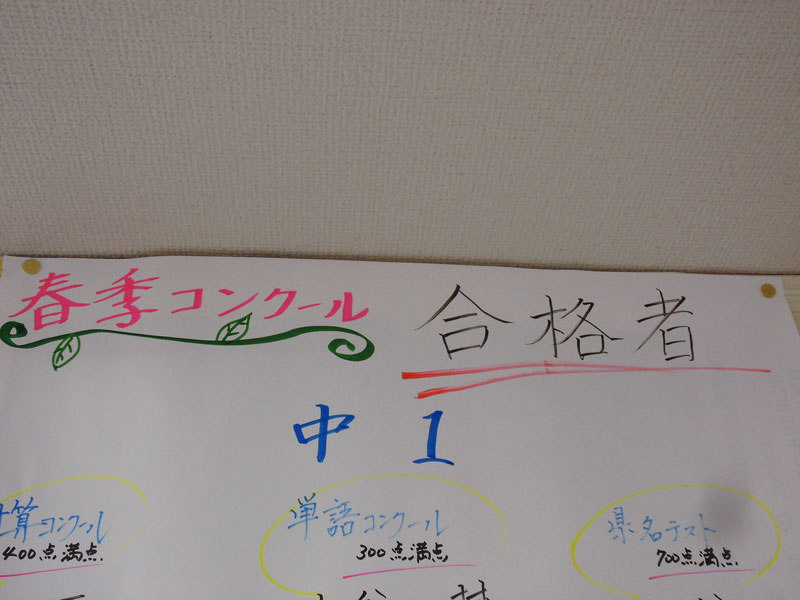 春季コンクール 合格者
中1
計算コンクール 単語コンクール 県名テスト
400点満点 300点満点 700点満点